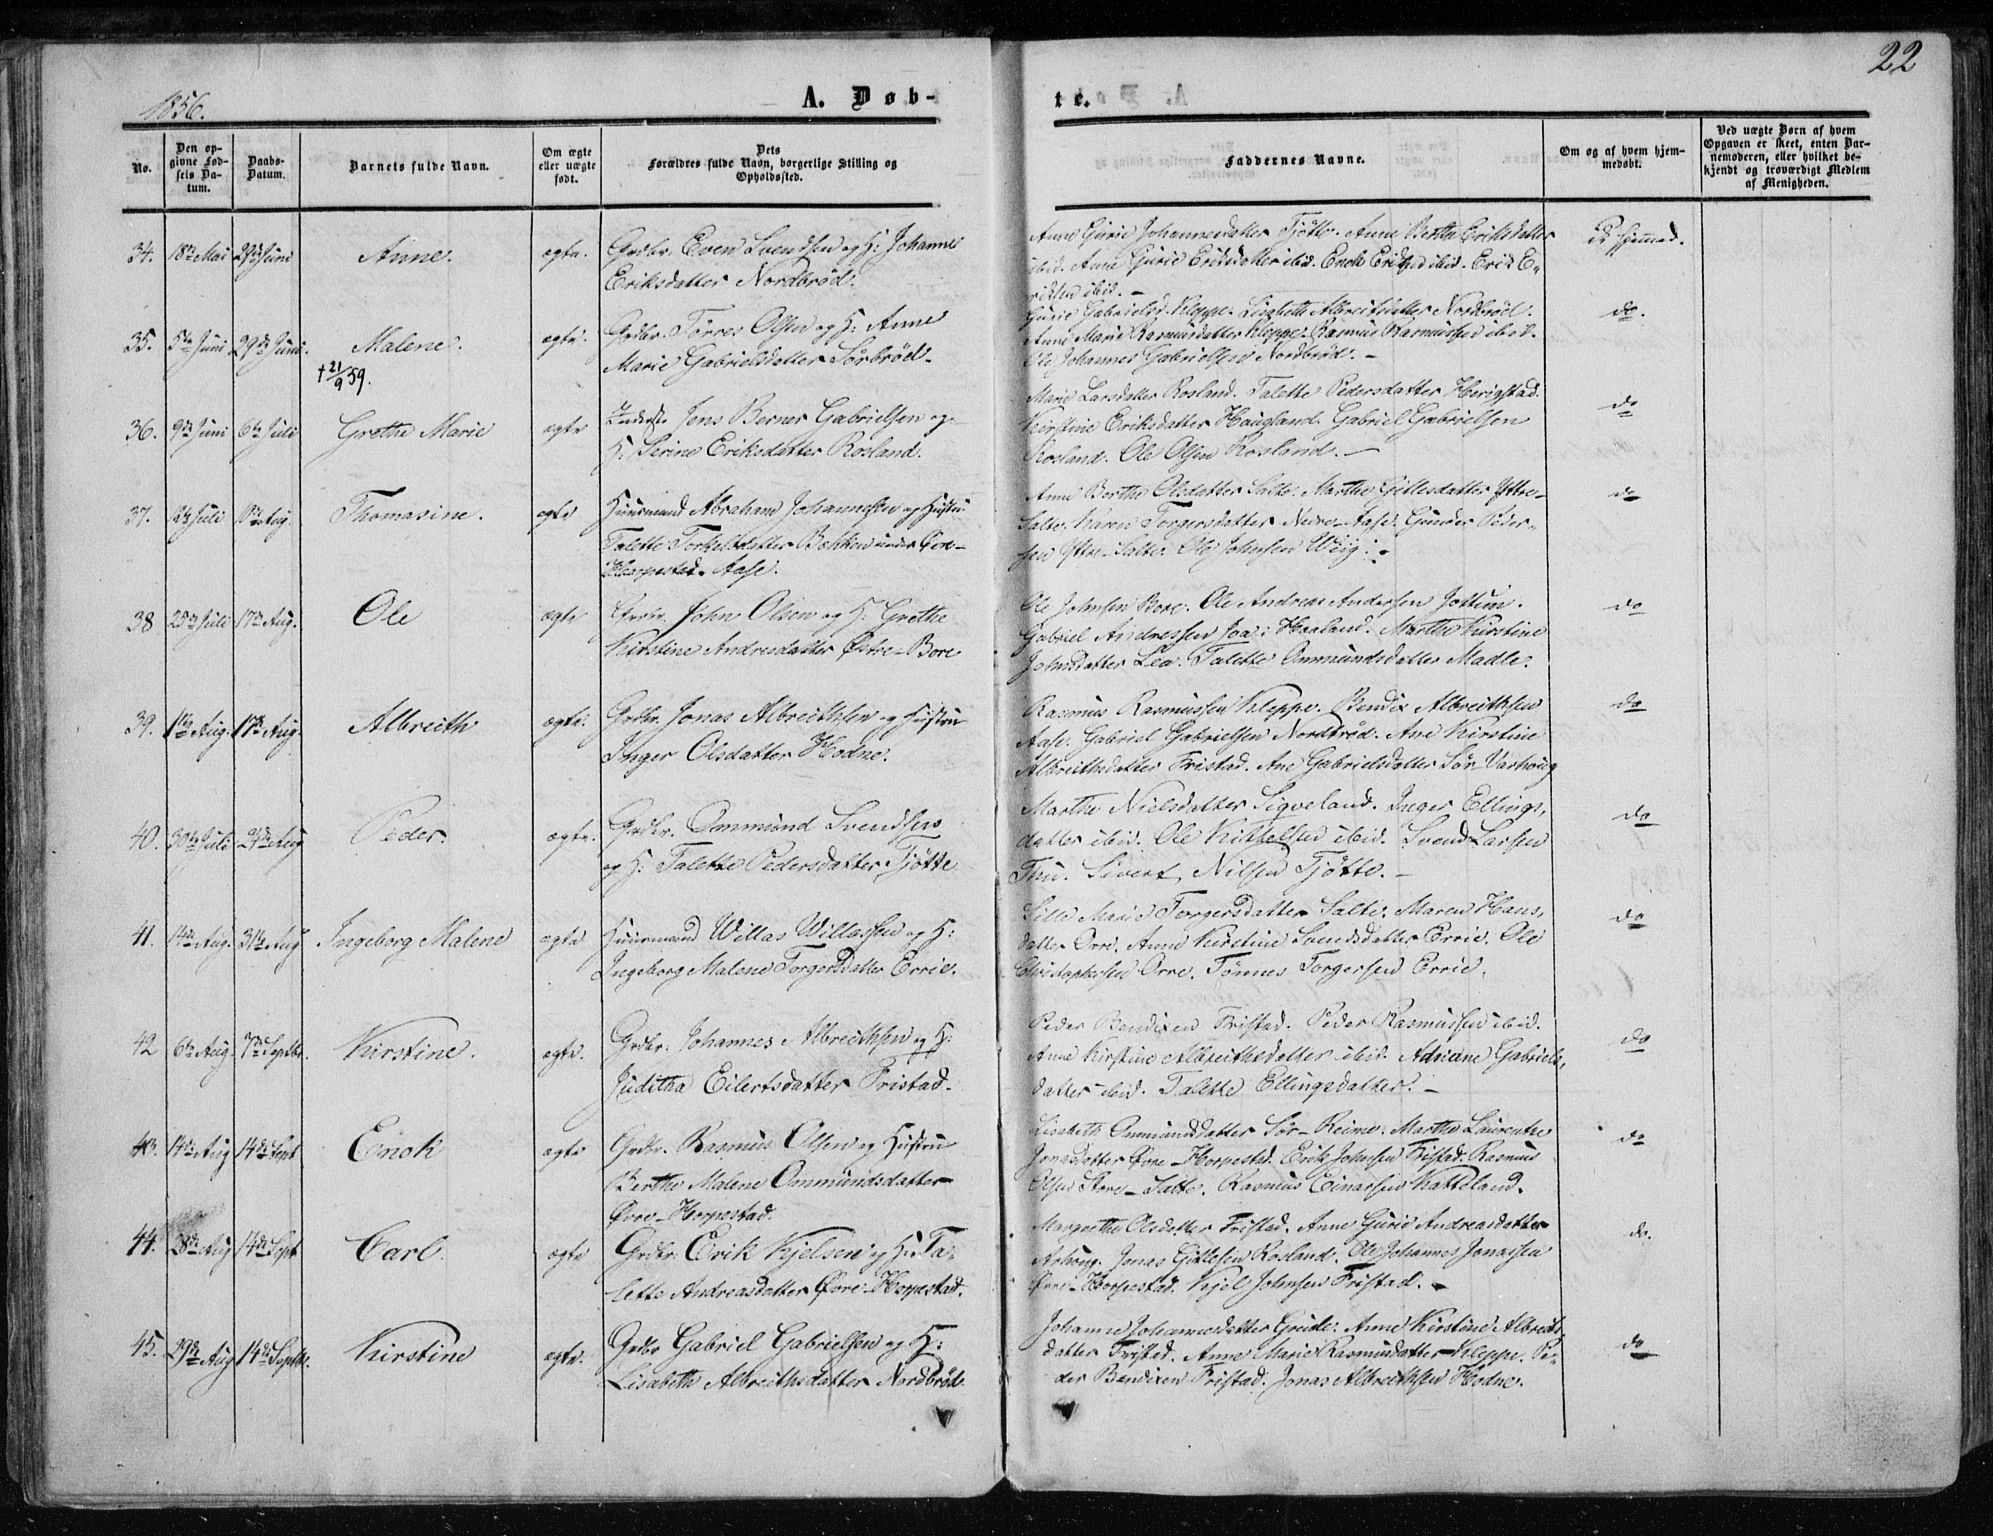 22
1856.
A. Døb-
te.
No.
Den op-
givne Fød-
sels Da-
tum.
Daabs-
Datum.
Barnets fulde Navn.
Om ægte
eller uægte
født.
Dets
Forældres fulde Navn, borgerlige Stilling og
Opholdssted.
Faddernes Navne.
Om og af hvem hjem-
medøbt.
Ved uægte Børn af hvem
Opgaven er skeet, enten Bar-
nemoderen, eller hvilket be-
kjendt og troværdigt Medlem
af Menigheden.
34. 18de Mai 29de Juni Anne. ægte. Grdbr. Even Svendsen og H: Johanne
Eriksdatter Nordbrød.
Anne Gurie Johannesdatter Tjøtte. Anne Berthe Eriksdatter
ibid. Anne Gurie Eriksdatter ibid. Enok Eriksen ibid. Erik E-
riksen ibid. -
hjemmed.
35. 5te Juni 29de Juni. Malene. ægte. Grdbr. Tørres Olsen og H: Anne
Marie Gabrielsdatter Sørbrød.
† 21/9 59.
Gurie Gabrielsd. Kleppe. Lisabeth Albreitsdatter Nordbrød.
Anne Marie Rasmusdatter Kleppe. Rasmus Rasmussen ibid.
Ole Johannes Gabrielsen Nordbrød. -
do.
36. 9de Juni 6te Juli Grethe Marie ægte Inderst. Jens Berner Gabrielsen og
H: Serine Eriksdatter Rosland.
Marie Larsdatter Rosland. Talette Pedersdatter Herigstad.
Kirstine Eriksdatter Haugland. Gabriel Gabrielsen
Rosland. Ole Olsen Rosland. -
do
37. Juli Aug. Thomasine. ægte Huusmand Abraham Johannessen og Hustru
Talette Torkelsdatter Bekken under Øvre-
Horpestad. Aase.
Anne Berthe Olsdatter Salte. Marthe Gitlesdatter Yttre-
Salte. Karen Torgersdatter Nedre-Aase. Gunder Peder-
sen Yttre-Salte. Ole Johnsen Wiig. -
do
38 25de Juli 17de Aug. Ole ægte Grdbr. John Olsen og H: Grethe
Kirstine Andreasdatter Østre-Bore
Ole Johnsen Bore. Ole Andreas Andersen Jottum.
Gabriel Andreassen Joa i Haaland. Marthe Kirstine
Johnsdatter Lea. Talette Ommundsdatter Madle.
do
39. 1ste Aug. 17de Aug. Albreith ægte. Grdbr. Jonas Albreithsen og Hustru
Inger Olsdatter Hodne.
Rasmus Rasmussen Kleppe. Bendix Albreithsen
Aase. Gabriel Gabrielsen Nordbrød. Ane Kirstine
Albreithsdatter Fristad. Ane Gabrielsdatter Sør Varhoug
do
40. 30te Juli 24de Aug Peder. ægte. Grdbr. Ommund Svendsen
og H: Talette Pedersdatter Tjøtte
Marthe Nielsdatter Sigveland. Inger Ellings,
datter ibid. Ole Kittelsen ibid. Svend Larsen
Thu. Sivert Nilsen Tjøtte. -
do
41. 14de Aug. 31te Aug Ingeborg Malene ægte Huusmand Willas Willassen og H:
Ingeborg Malene Torgersdatter Errie.
Sille Marie Torgersdatter Salte. Maren Hans,
datter Orre. Anne Kirstine Svendsdatter Errie. Ole
Christophersen Orre. Tønnes Torgersen Errie.
do
42 6te Aug. 7de Septbr. Kirstine. ægte. Grdbr. Johannes Albreithsen og H:
Juditha Eilertsdatter Fristad.
Peder Bendixen Fristad. Peder Rasmussen ibid.
Anne Kirstine Albreithsdatter ibid. Adriane Gabriels,
datter ibid. Talette Ellingsdatter. -
do
43. 14de Aug 14de Sept Enok ægte Grdbr. Rasmus Olsen og Hustru
Berthe Malene Ommundsdatter
Øvre-Horpestad.
Lisabeth Ommundsdatter Sør-Reime. Marthe Laurentse
Jonasdatter Øvre-Horpestad. Erik Johnsen Fristad. Rasmus
Olsen Store-Salte. Rasmus Einarsen Katteland.
do
44. 28de Aug 14de Sept Carl. ægte Grdbr. Erik Kjelsen og H: Ta-
lette Andreasdatter Øvre-Horpestad.
Margrethe Olsdatter Fristad. Anne Gurie Andreasdatter
Jonas Gitlesen Rosland. Ole Johannes Jonassen
Øvre-Horpestad. Kjel Johnsen Fristad. -
do.
45. 29de Aug 14de Septbr. Kirstine ægte. Grdbr Gabriel Gabrielsen og H:
Lisabeth Albreithsdatter Nordbrød.
Johanne Johannesdatter Grude. Anne Kirstine Albreiths,
datter Fristad. Anne Marie Rasmusdatter Kleppe. Pe-
der Bendixen Fristad. Jonas Albreithsen Hodne.
do